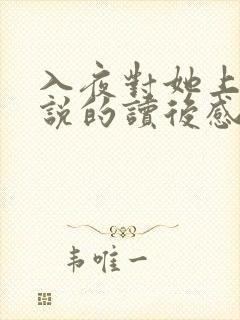 入夜對她上
說的讀後感
韦唯一